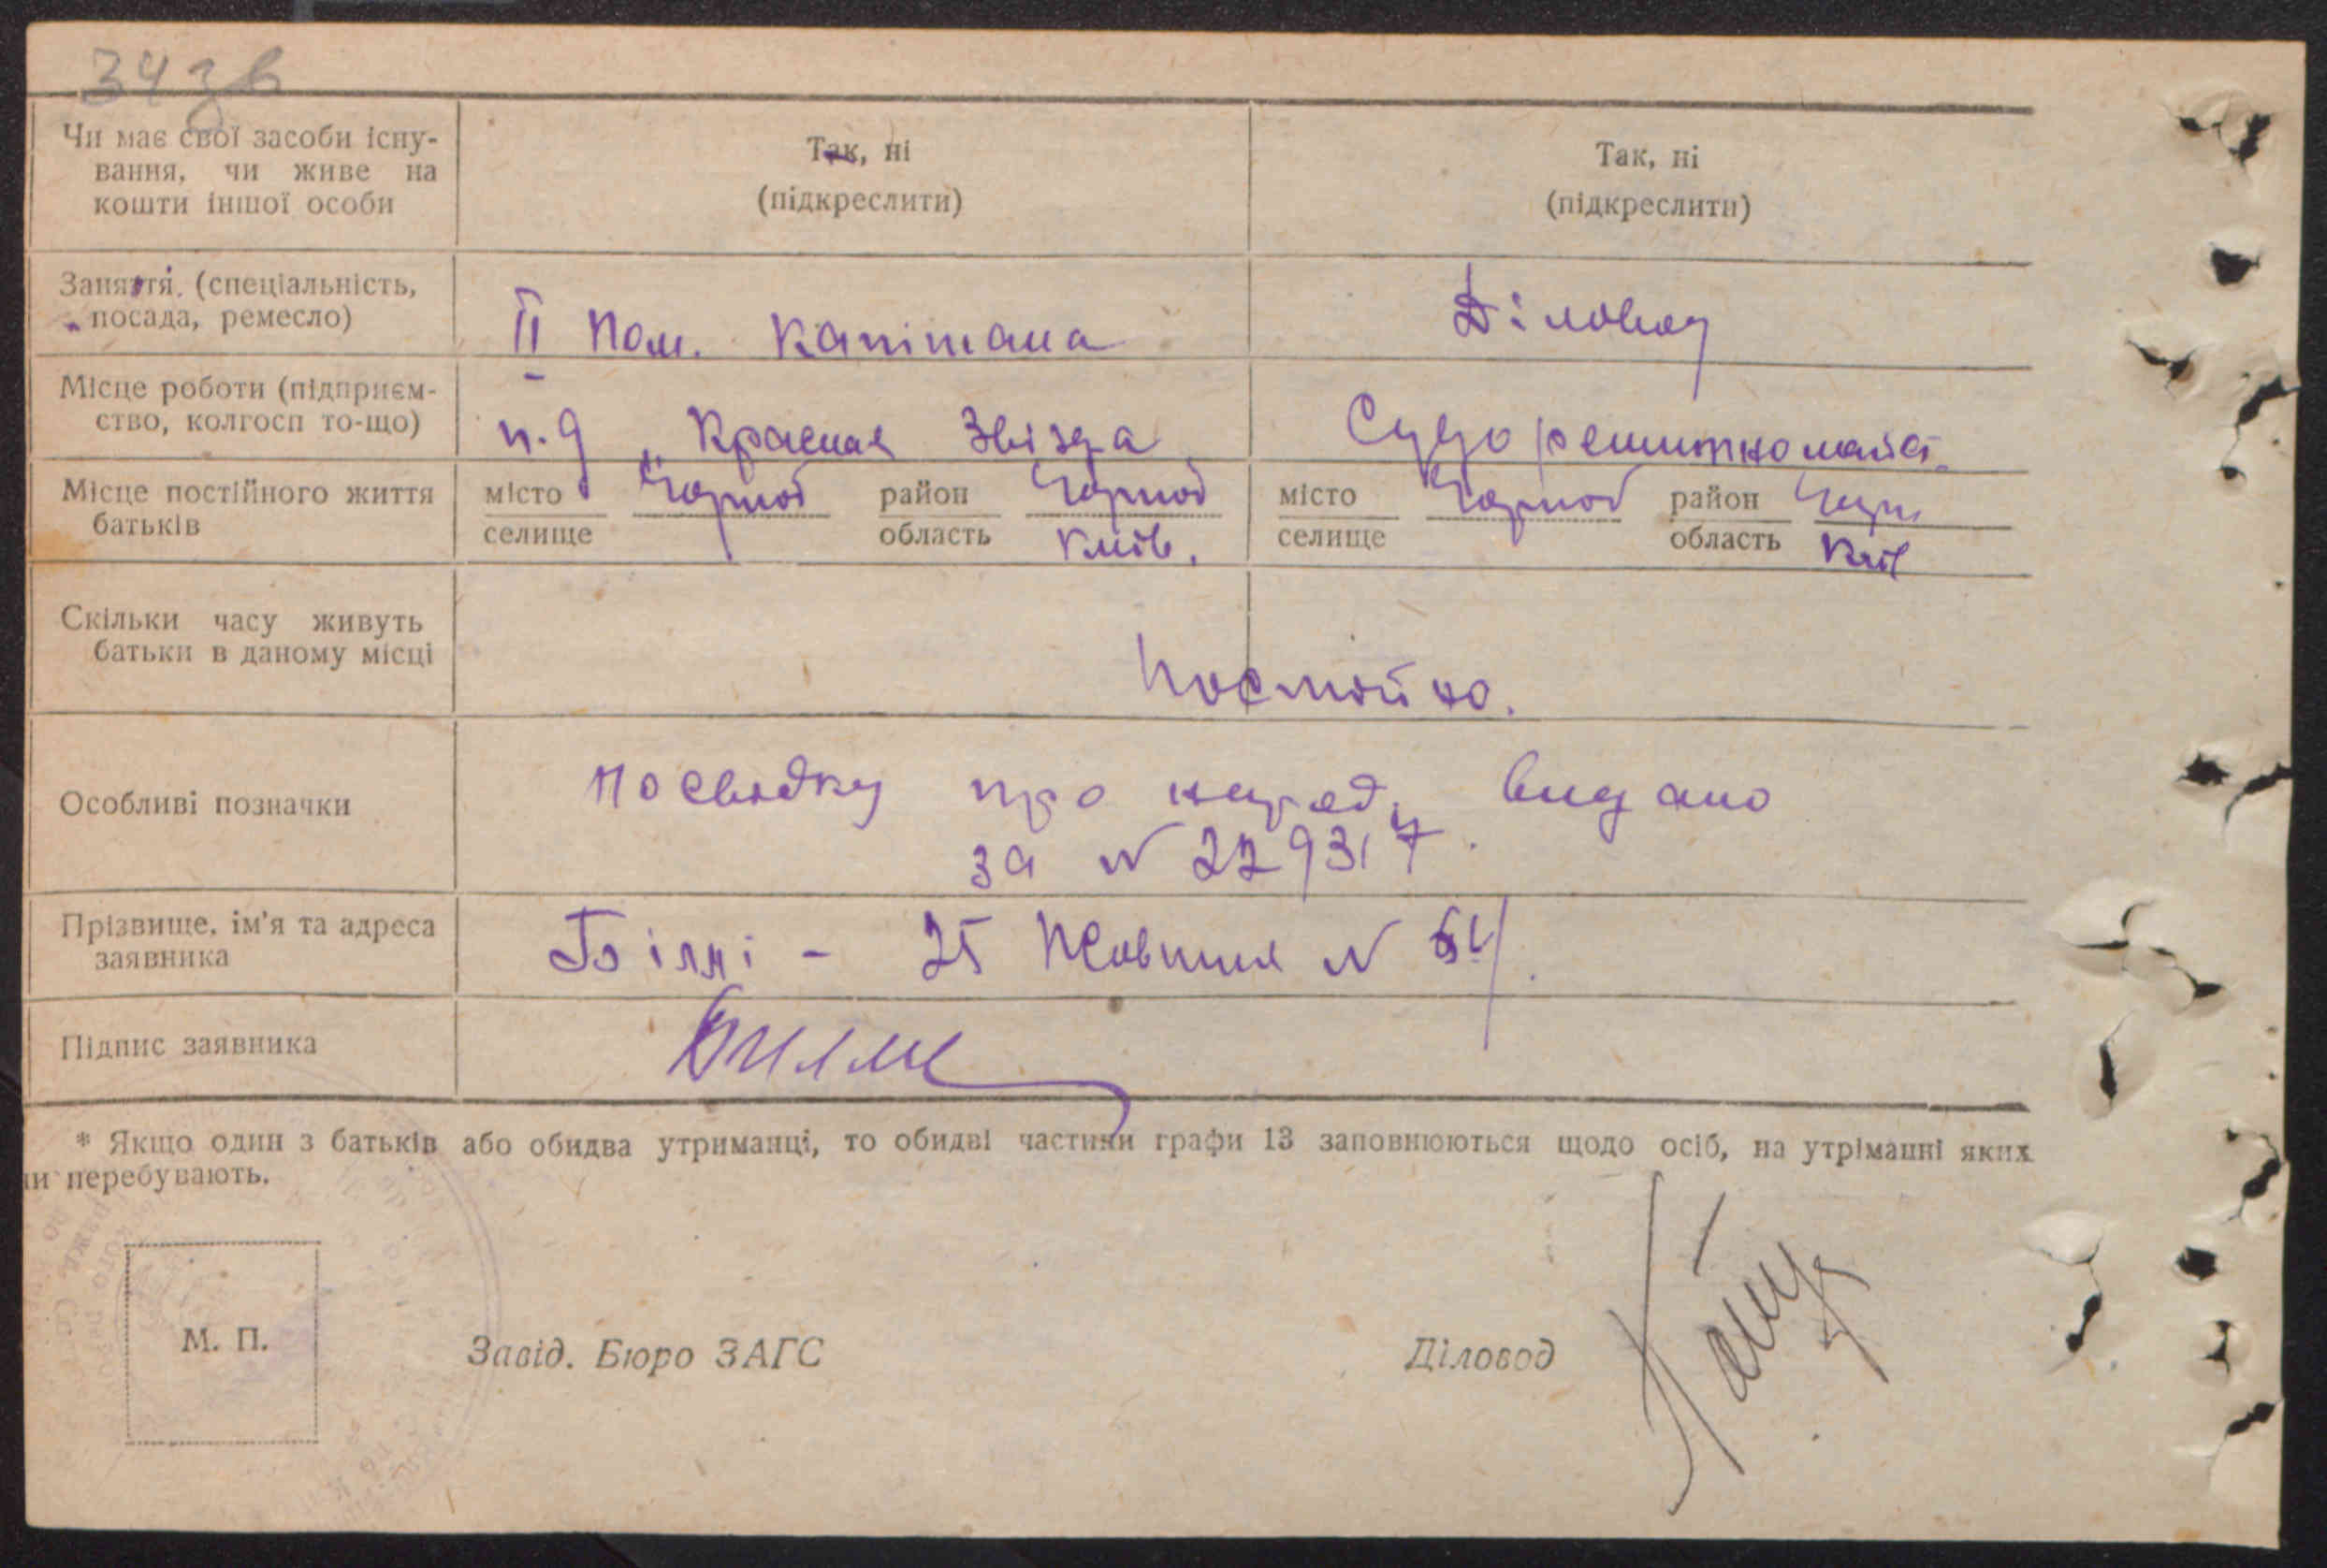 34 зв
Чи має свої засоби існу-
вання, чи живе на
кошти іншої особи
Так, ні
(підкреслити)
Так, ні
(підкреслити)
Заняття (спеціальність,
посада, ремесло)
II пом. капітана
Діловод
Місце роботи (підприєм-
ство, колгосп то-що)
п. д „Красная Звізда
Місце постійного життя
батьків
місто
селище
Чорноб
район
область
Чорноб
Київ.
місто
селище
Чорноб
район
область
Чорн
Київ
Скільки часу живуть
батьки в даному місці
Постійно.
Особливі позначки
Посвідку про народ. видано
за № 229317.
Прізвище, ім'я та адреса
заявника
25 Жовтня № 64
Підпис заявника
* Якщо один з батьків або обидва утриманці, то обидві частини графи 13 заповнюються щодо осіб, на утріманні яких
ни перебувають.
М. П.
Завід. Бюро ЗАГС
Діловод